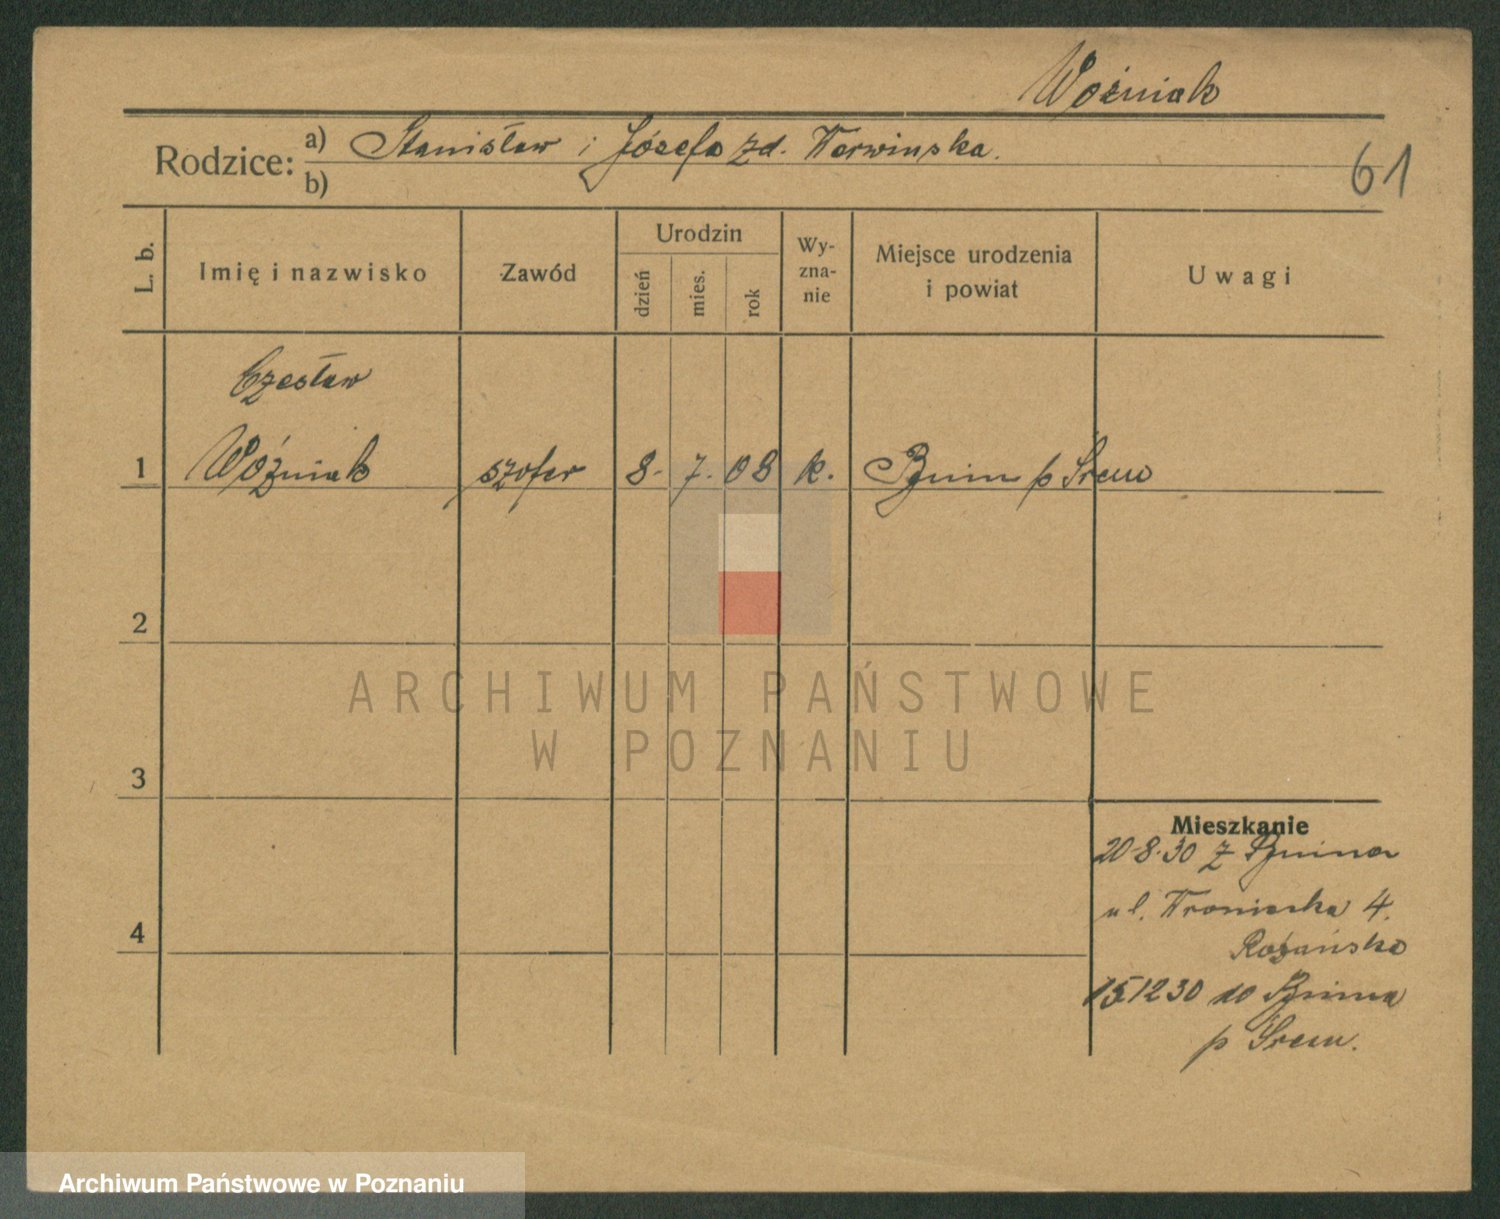 Woźniak
Rodzice: a) Stanisław i Józefa zd. Nerwinska.
b)
61
L. b.
Imię i nazwisko
Zawód
Urodzin
dzień
mies.
rok
Wy-
zna-
nie
Miejsce urodzenia
i powiat
Uwagi
Czesław
1 Woźniak szofer 8. 7. 08 k. Bnin p Śrem
2
3
4
ARCHIWUM PAŃSTWOWE
W POZNANIU
Mieszkanie
20-8.30 z Bnina
ul. Wroniecka 4.
15.12 30 do Bnina
p Śrem.
Archiwum Państwowe w Poznaniu